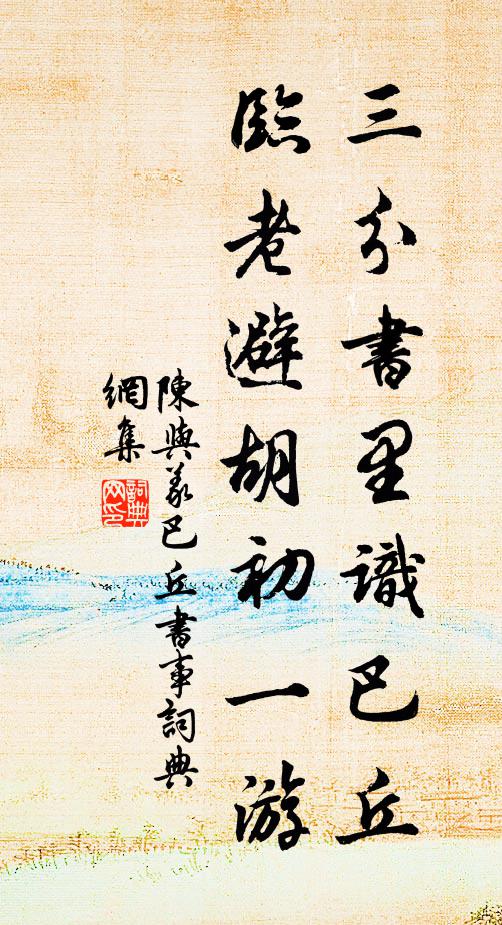 三分書里識巴丘
臨老避胡初一游
陳與義巴丘書事詞典
網集
詞典
网印